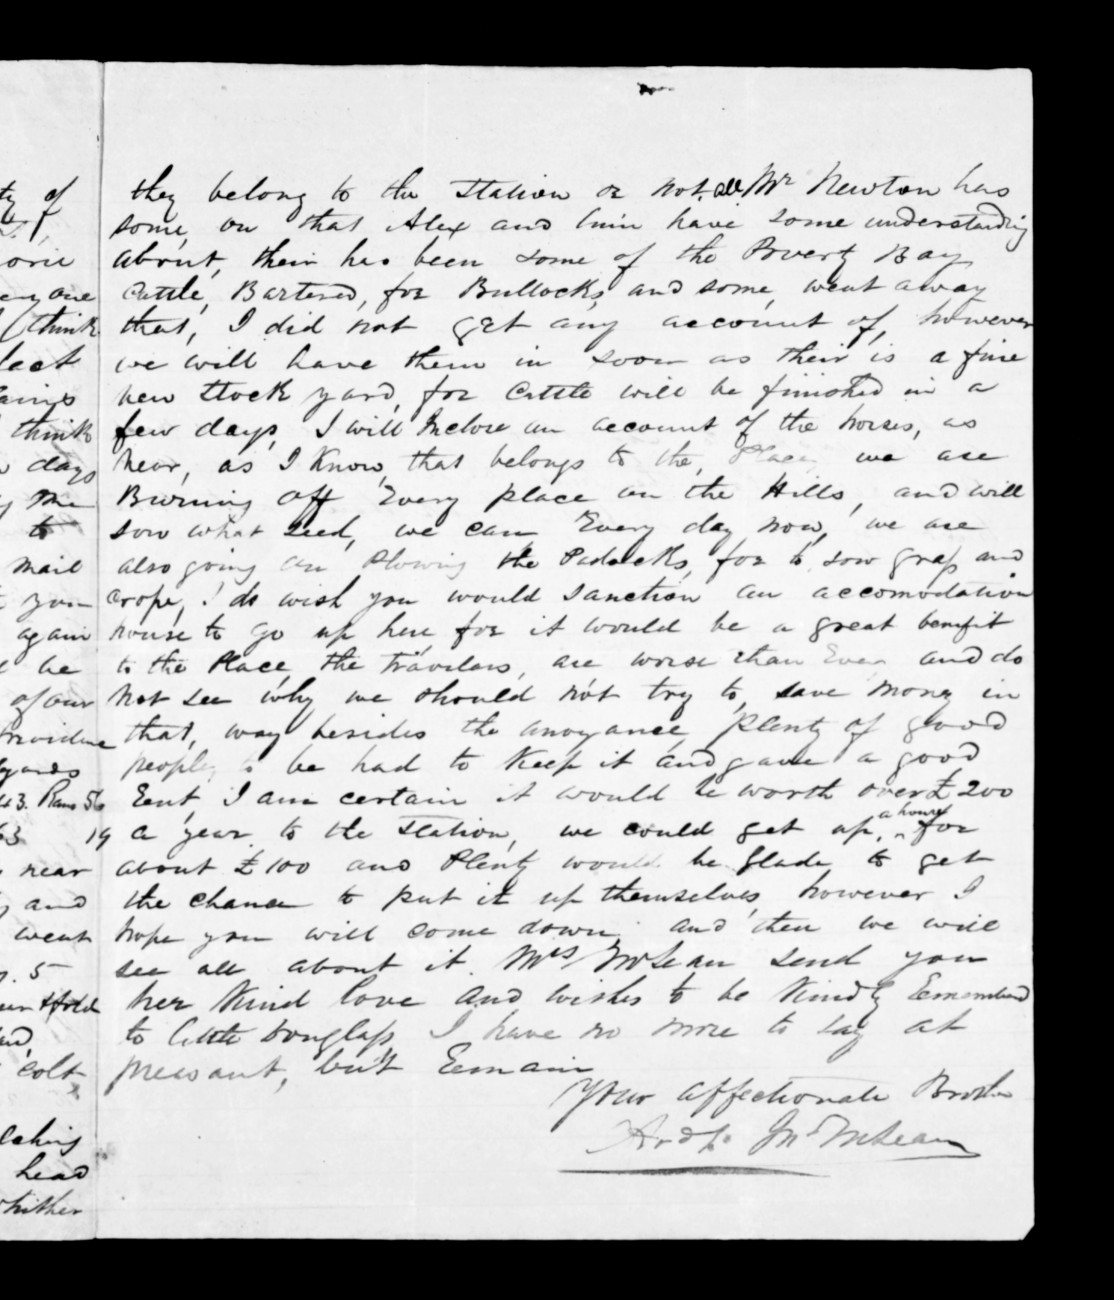 ty of
orie
ery one
think
lect
ains
think
days
me
to
mail
you
again
be
of our
yards
43. Rams 56
63 19
near
and
went
5
colt
head
whither
they belong to the Station or not. all Mr Newton has
some, on that Alex and him have some understanding
about, their has been some of the Poverty Bay
Cattle, Bartered, for Bullocks, and some, went away
that, I did not get any account of, however
we will have them in soon as their is a fine
new Stock yard, for Cattle will be finished in a
few days, I will Inclose an account of the horses, as
near, as I Know, that belongs to the, Place, we are
Burning off Every place on the Hills, and will
sow what seed, we can Every day now, we are
also going on Plowing the Padocks, for to sow grass and
crops, I do wish you would sanction an accomodation
house to go up here for it would be a great benefit
to the Place, the travelers, are worse than Ever and do
not see why we should not try to, save money in
that, way besides the anoyance, plenty of good
people, to be had to Keep it and gave a good
Rent I am certain it would be worth over £200
a year, to the Station, we could get up, a house for
about £100 and Plenty would be glade to get
the chance to put it up themselves, however I
hope you will come down and then we will
see all about it. Mrs McLean send you
her Kind love and wishes to be Kindly Remembered
to little Douglass, I have no more to say at
presant, but Remain
Your affectionate Brother
Archd. Jn. McLean